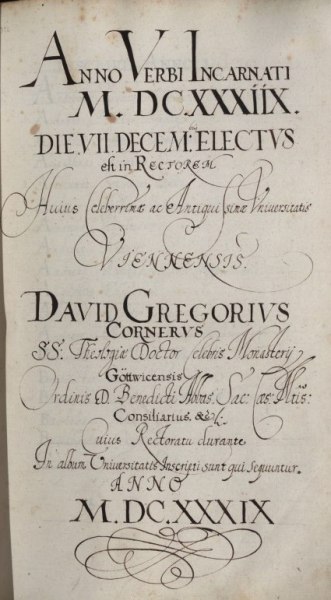 ANNO VERBI INCARNATI
M. DCXXXIIX.
DIE.VII. DECEM: ELECTVS
est in RECTOREM
Huius Celeberrimæ ac Antiquissimæ Vniuersitatis
VIENNENSIS.
DAVID GREGORIVS
CORNERVS
SS: Theologiæ Doctor celebris Monasterij
Göttwicensis
Ordinis D. Benedicti Abbas. Sac: Cæs: Mtis:
Consiliarius. &c
Cuius Rectoratu durante
In album Vniuersitatis Inscripti sunt qui sequuntur.
ANNO
M. DC.XXXIX